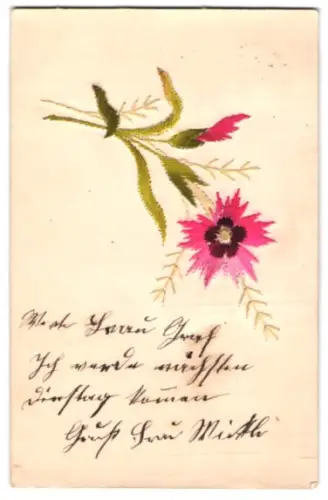 Werte Frau Graf
Ich werde nächsten
Dinstag kommen
Gruß Frau Wickli